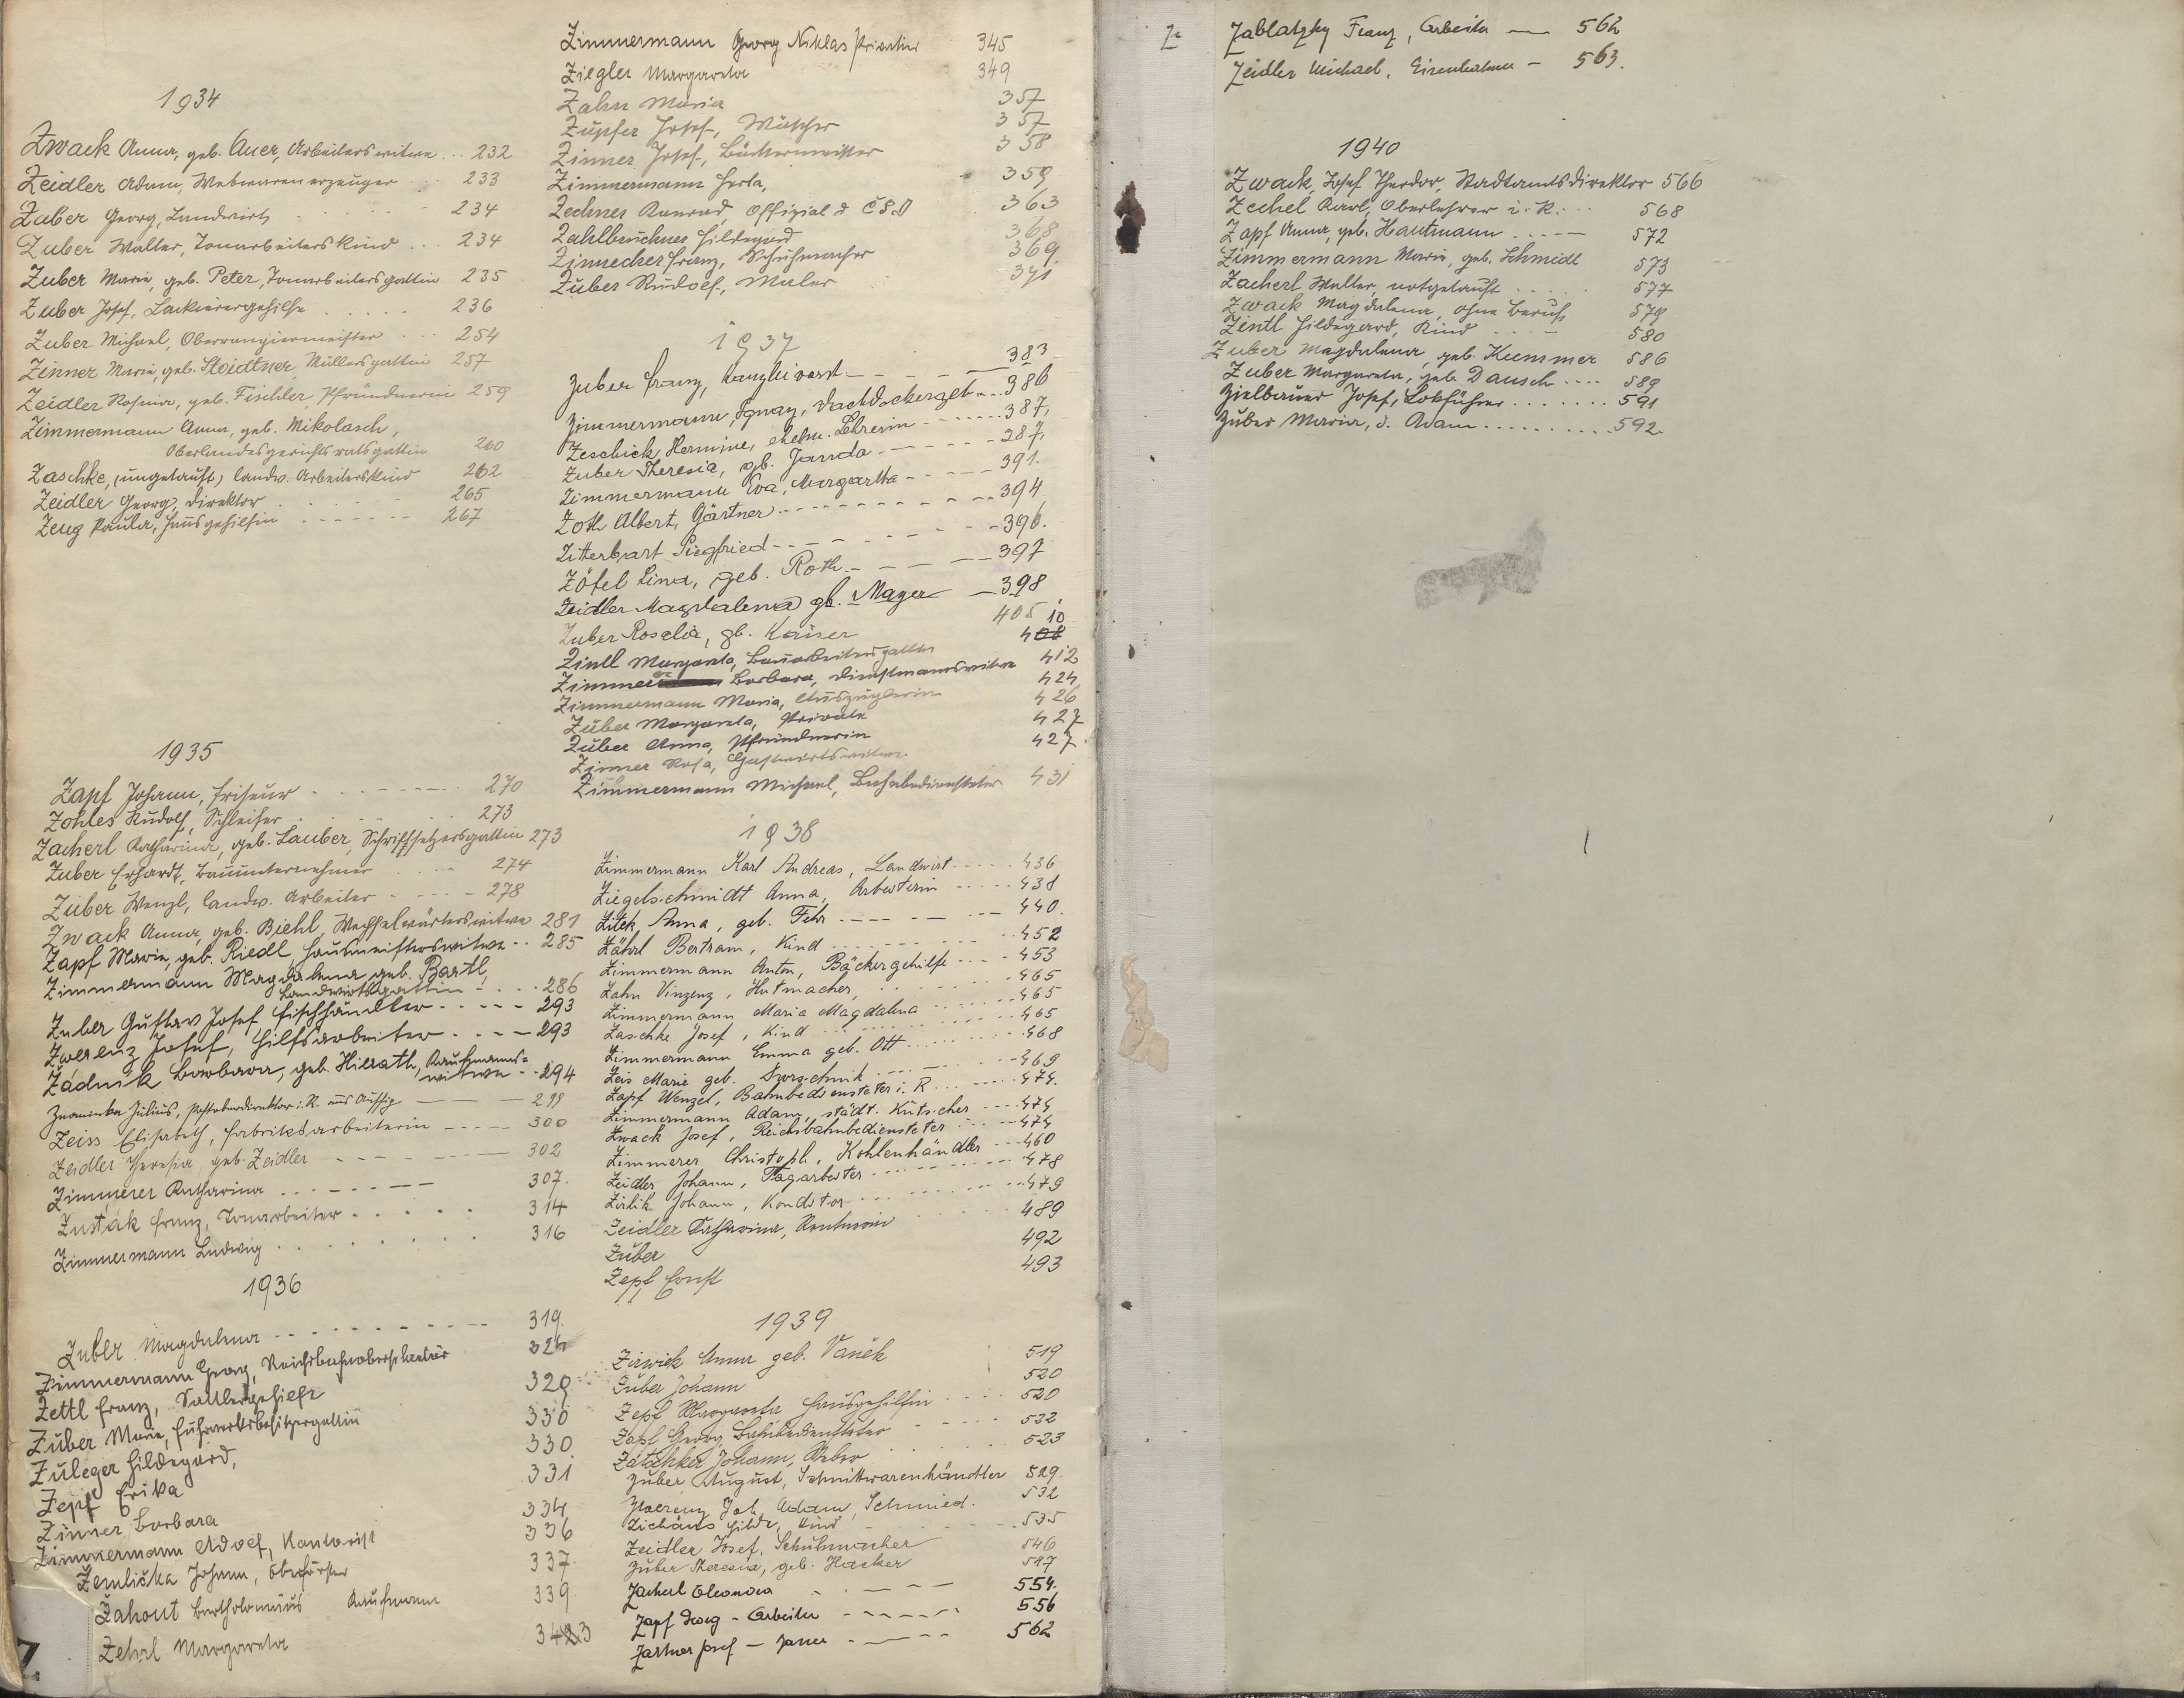 1934
Zwack Anna, geb. Auer, Arbeiterswitwe ... 232
Zeidler Adam, Webwarenerzeuger ... 233
Zuber Georg, Landwirt ... 234
Zuber Walter, Tonarbeiterskind ... 234
Zuber Marie, geb. Peter, Tonarbeitersgattin 235
Zuber Josef, Lackierergehilfe ..... 236
Zuber Michael, Oberrangiermeister ... 254
Zinner Marie, geb. Stoidtner, Müllersgattin 257
Zeidler Rosina, geb. Fischler, Pfründnerin 259
Zimmermann Anna, geb. Mikolasch,
Oberlandesgerichtsratsgattin 260
Zaschke, (ungetauft) landw. Arbeiterskind 262
Zeidler Georg, Direktor 265
Zeug Paula, Hausgehilfin ------ 267
1935
Zapf Johann, Friseur ------ 270
Zohles Rudolf, Schleifer ..... 273
Zacherl Katharina, geb. Lauber, Schriftsetzersgattin 273
Zuber Erhardt, Bauunternehmer ... 274
Zuber Wenzl, landw. Arbeiter ---- 278
Zwack Anna, geb. Biehl, Wechselwärterswitwe 281
Zapf Marie, geb. Riedl, Hausmeisterswitwe .. 285
Zimmermann Magdalena geb. Bartl,
Landwirtsgattin ... 286
Zuber Gustav Josef, Fischhändler .... 293
Zwerenz Josef, Hilfsarbeiter ... 293
Zádnik Barbara, geb. Hierath, Kaufmanns=
witwe -- 294
Znamenka Julius, Postoberdirektor i. R. aus Aussig — 299
Zeiss Elisabeth, Fabriksarbeiterin ---- 300
Zeidler Theresia geb. Zeidler ---- 302
Zimmerer Katharina ------ 307.
Zusťak Franz, Tonarbeiter ..... 314
Zimmermann Ludwig ....... 316
1936
Zuber Magdalena ---------- 319.
Zimmermann Georg, 324
Zettl Franz, Sattlergehilfe 329
Zuber Marie, Fuhrwerksbesitzergattin 330
Zuleger Hildegard, 330
Zepf Erika 331
Zinner Barbara 334
Zimmermann Adolf, Kantorist 336
Zemlička Johann, Oberförster 337.
Zahout Bartholomäus Kaufmann 339.
Zehrl Margareta 3423
Z.
Zimmermann Georg Niklas Privatier 345
Ziegler Margareta 349
Zahn Maria 357
Zupfer Josef, Wäscher 357
Zinner Josef, Bäckermeister 358
Zimmermann Herta, 359
Zechner Konrad, Offizial d ČSD 363
Zahlbruckner Hildegard 368
Zinnecker Franz, Schuhmacher 369.
Zuber Rudolf, Maler 371
1937
Zuber Franz, Kanzleivorst. — 383
Zimmermann, Ignaz, Dachdeckergeh... 386
Zeschick Hermine, ehem. Lehrerin ..... 387,
Zuber Theresia, gb. Janda ----- 387.
Zimmermann Eva, Margartha ---- 391.
Zoth Albert, Gärtner -------- 394
Zitterbart Siegfried ------- 396.
Zöfel Lina, geb. Roth ---- 397
Zeidler Magdalena gb. Mayer — 398
Zuber Rosalia, gb. Kaiser 405
Zintl Margareta, Bauarbeitersgattin 410
Zimmer Barbara, Dienstmannswitwe 412
Zimmermann Maria, Auszüglerin 424
Zuber Margareta, Private 426
Zuber Anna, Pfründnerin 427
Zinner Rosa, Gastwirtswitwe 427.
Zimmermann Michael, 431
1938
Zimmermann Karl Andreas, Landwirt ..... 436
Ziegelschmidt Anna, Arbeiterin ..... 438
Zitek, Anna, geb. Fehr ------ 440.
Zährl Bertram, Kind ........ 452
Zimmermann Anton, Bäckergehilfe .... 453
Zahn Vinzenz, Hutmacher, ...... 465
Zimmermann Maria Magdalena ...... 465
Zaschke Josef, Kind ......... 465
Zimmermann Emma geb. Ott ........ 468
Zeis Marie geb. ...... 469
Zapf Wenzel, Bahnbediensteter i. R ...... 474.
Zimmermann Adam, städt. Kutscher .... 474
Zwack Josef, Reichsbahnbediensteter ..... 474
Zimmerer Christoph, Kohlenhändler ... 460
Zeidler Johann, Tagarbeiter ........ 478
Zirlik Johann, Konditor ........ 479
Zeidler Katharina, Rentnerin 489
Zuber 492
Zepf Ernst 493
1939
Zirwick Anna geb. Vaněk 519
Zuber Johann 520
Zepf Margareta Hausgehilfin 520
Zapf Georg Bahnbediensteter 522
Johann, Weber 523
Zuber August, Schnittwarenhändler 529.
Zwerenz Joh. Adam, Schmied. 532
Hilde, Kind 535
Zeidler Josef, Schuhmacher 546
Zuber Theresia, geb. Hacker 547
Zacherl Eleonora ------ 554.
Zapf Georg - Arbeiter ------ 556
Zartner Josef — ------ 562
Z.
Zablatzky Franz, Arbeiter — 562
Zeidler Michael, Eisenbahner — 563.
1940
Zwack, Josef Theodor, Stadtamtsdirektor 566
Zechel Karl, Oberlehrer i. R. ... 568
Zapf Anna, geb. Hautmann ..... 572
Zimmermann Marie, geb. Schmidl 573
Zacherl Walter, notgetauft ..... 577
Zwack Magdalena, ohne Beruf, 579
Zintl Hildegard, Kind 580
Zuber Magdalena, geb. Kummer 586
Zuber Margareta, geb. Dausch .... 589
Zielbauer Josef, Lokführer ....... 591
Zuber Maria, d. Adam ......... 592.